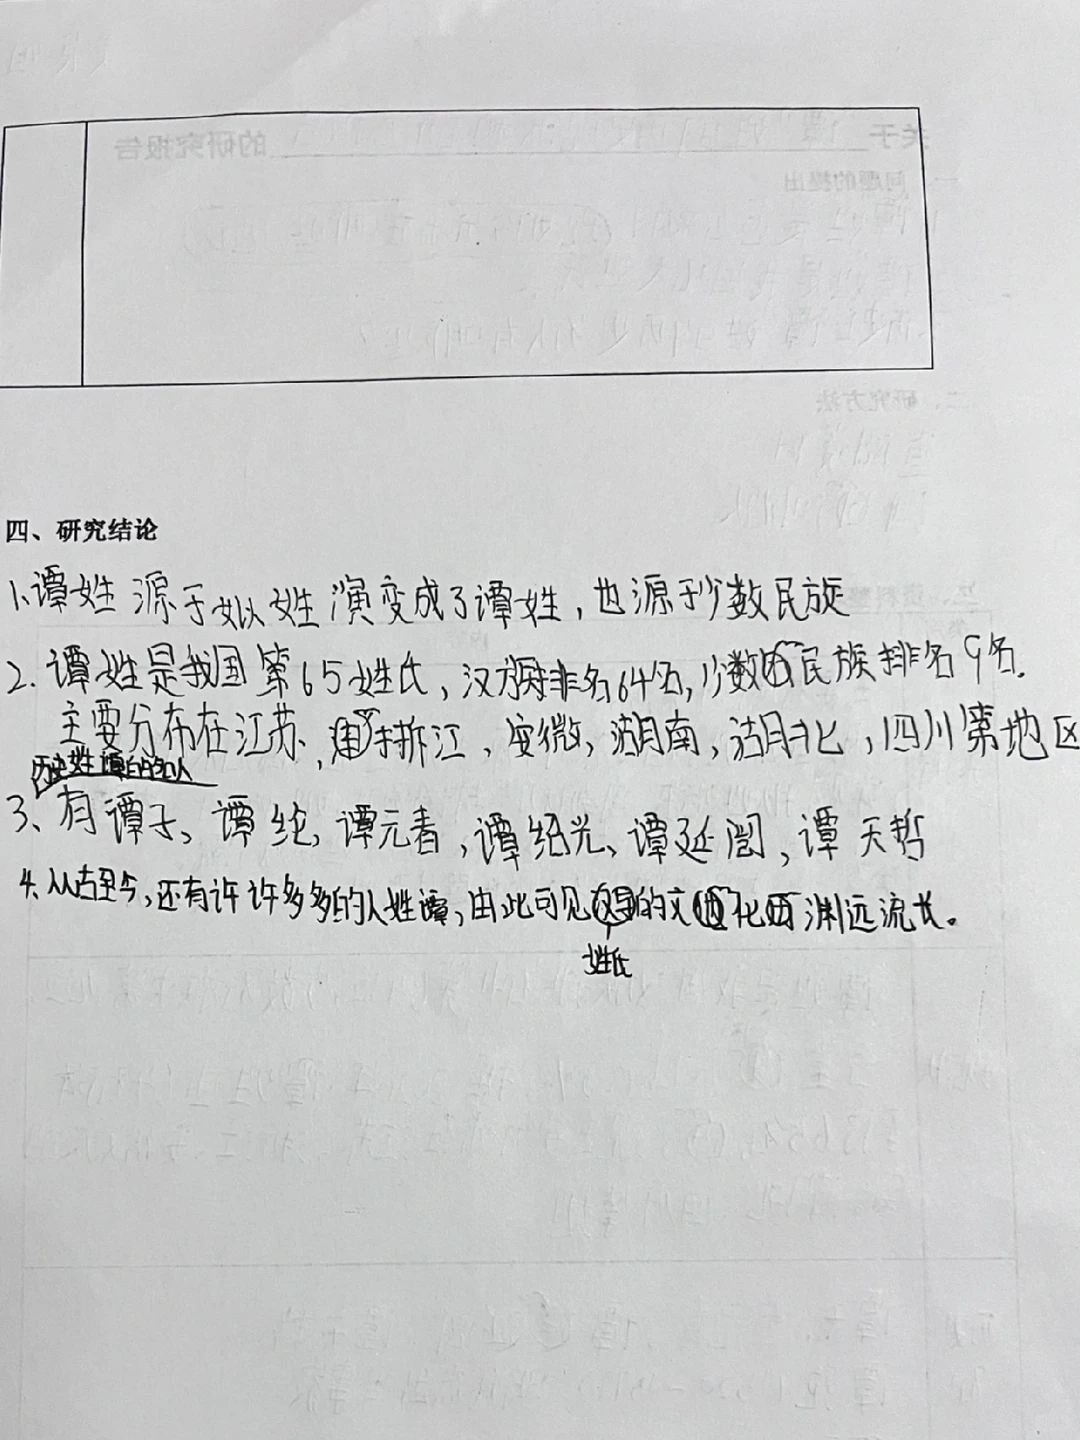 四、研究结论
1.谭姓源于姒姓演变成了谭姓,也源于少数民族
2.谭姓是我国第65姓氏,汉族排名64名,少数民族排名9名.
主要分布在江苏,浙江,安微,湖南,湖北,四川第地区
历史姓谭的名人
3、有谭子、谭纶,谭元春,谭绍光、谭延闿,谭天哲
4.从古至今,还有许许多多的人姓谭,由此可见姓氏的文化渊远流长。